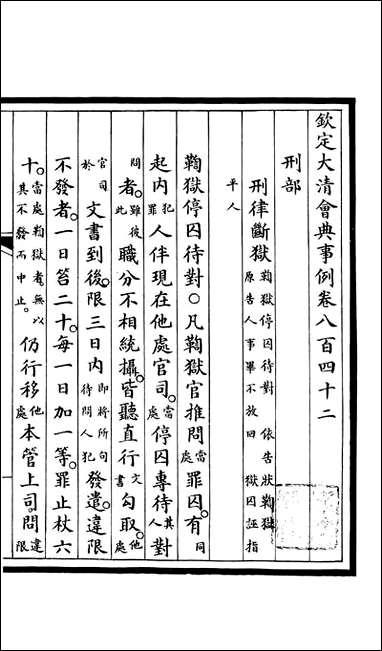 欽定大清會典事例卷八百四十二
刑部
刑律斷獄 鞫獄停囚待對 依告狀鞫獄 原告人事畢不放回 獄囚誣指
平人
鞫獄停囚待對○凡鞫獄官推問當處罪囚。有同
起內犯罪人伴現在他處官司。當處停囚專待其人對
問者。雖彼此職分不相統攝。皆聽直行文書勾取。他處
官司於文書到後。限三日內即將所句待問人犯發遣。違限
不發者。一日笞二十。每一日加一等。罪止杖六
十。當處鞫獄者無以其不發而中止。仍行移他處本管上司。問違限